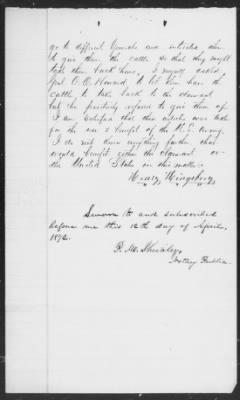 go to different Generals and intended them
to give them the cattle so that they might
take them back home, I myself asked
Genl O. O. Howard to let him have the
cattle to take back to the claimant
but he positively refused to give them up.
I am satisfied that these articles was taken
for the use & benefit of the U.S. Army.
I do not know anything further that
would benefit either the claimant or
the United States in this matter.
Henry Kingsbery
Sworn to and subscribed
before me this 12th day of April,
1872.
P. M. Sheibley,
Notary Public